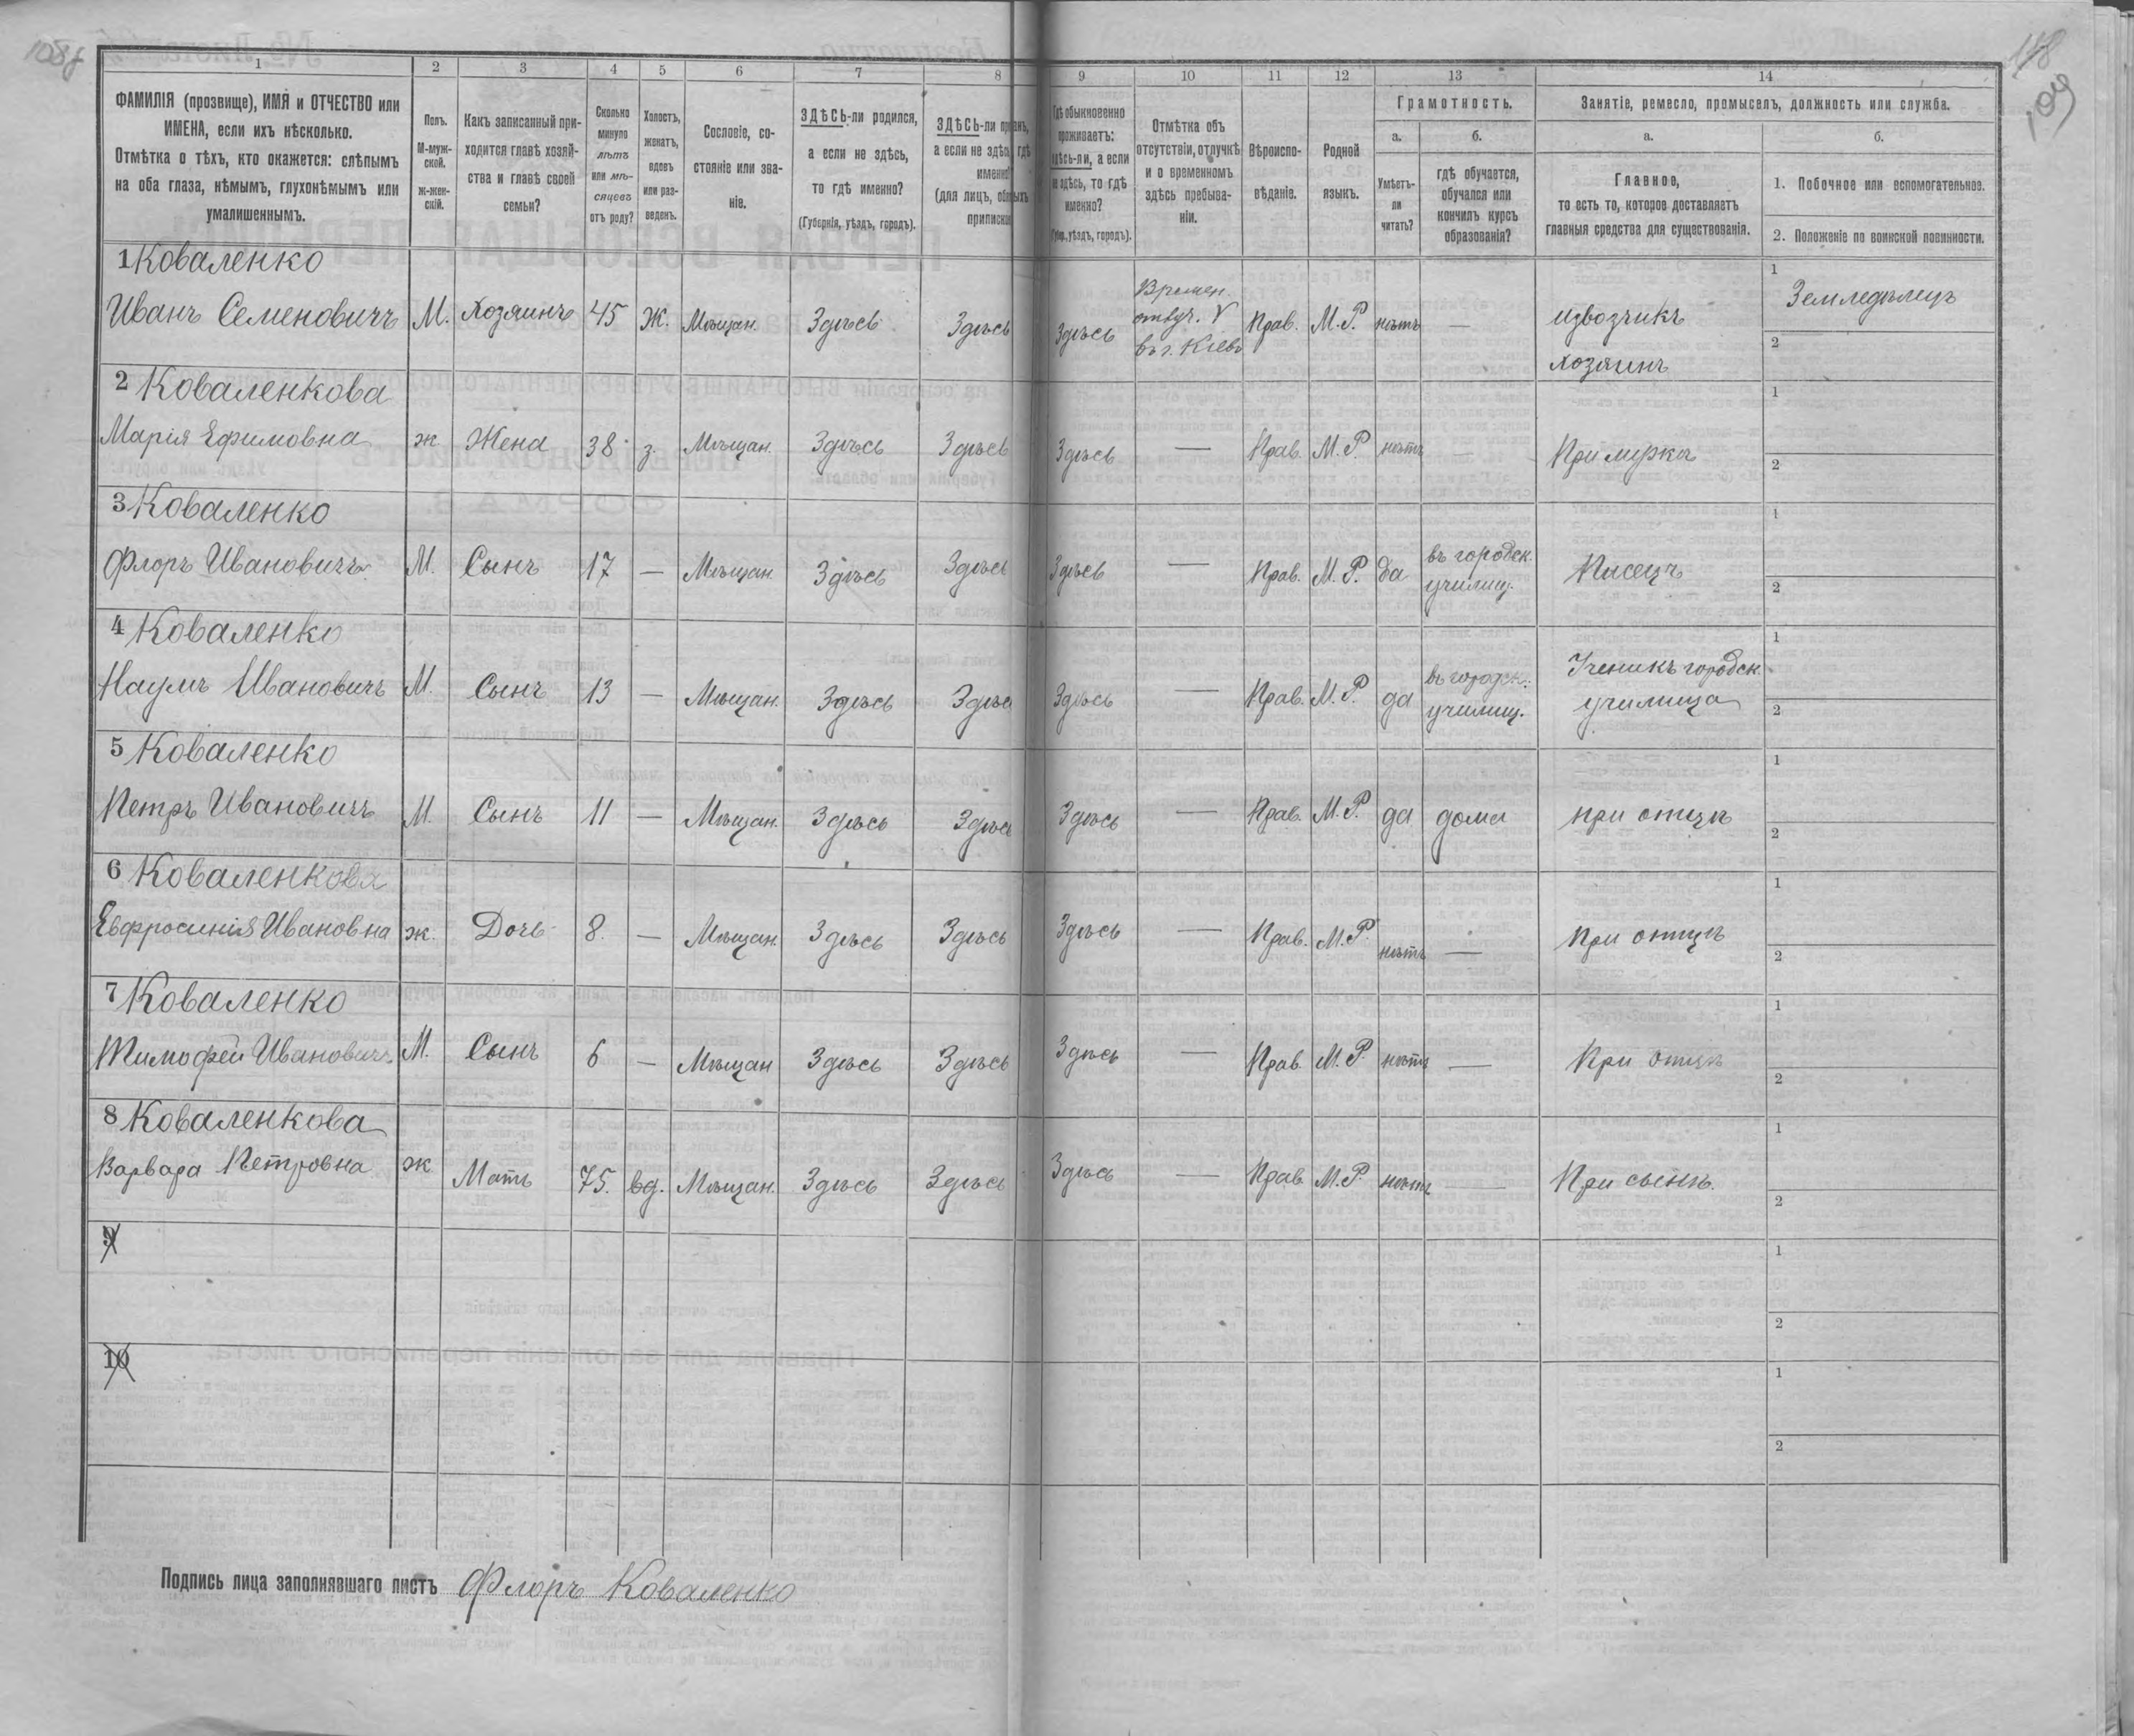 108
118
109
1 2 3 4 5 6 7 8 9 10 11 12 13 14
ФАМИЛІЯ (прозвище), ИМЯ и ОТЧЕСТВО или
ИМЕНА, если ихъ нѣсколько.
Отмѣтка о тѣхъ, кто окажется: слѣпымъ
на оба глаза, нѣмымъ, глухонѣмымъ или
умалишеннымъ.
Полъ.
М-муж-
ской.
ж-жен-
скій.
Какъ записанный при-
ходится главѣ хозяй-
ства и главѣ своей
семьи?
Сколько
минуло
лѣтъ
или мѣ-
сяцевъ
отъ роду?
Холостъ,
женатъ,
вдовъ
или раз-
веденъ.
Сословіе, со-
стояніе или зва-
ніе.
ЗДѢСЬ-ли родился,
а если не здѣсь,
то гдѣ именно?
(Губернія, уѣздъ, городъ).
ЗДѢСЬ-ли
а если не здѣсь, гдѣ
именно?
(для лицъ,
Гдѣ обыкновенно
проживаетъ:
здѣсь-ли, а если
не здѣсь, то гдѣ
именно?
(Губ., уѣздъ, городъ).
Отмѣтка объ
отсутствіи, отлучкѣ
и о временномъ
здѣсь пребыва-
ніи.
Вѣроиспо-
вѣданіе.
Родной
языкъ.
Грамотность.
а. б.
Умѣетъ-
ли
читать?
гдѣ обучается,
обучался или
кончилъ курсъ
образованія?
Занятіе, ремесло, промыселъ, должность или служба.
а. б.
Главное,
то есть то, которое доставляетъ
главныя средства для существованія.
1. Побочное или вспомогательное.
2. Положеніе по воинской повинности.
1 Коваленко
Иванъ Семеновичъ М. Хозяинъ 45 Ж. Мѣщан. Здѣсь Здѣсь Здѣсь
Времен.
отлуч. V
въ г. Кіевъ
Прав. М.Р. нѣтъ —
извозчикъ
хозяинъ
1 Земледѣлецъ
2
2 Коваленкова
Марія Ефимовна ж Жена 38 з. Мѣщан. Здѣсь Здѣсь Здѣсь — Прав. М.Р. нѣтъ — При мужѣ
1
2
3 Коваленко
Флоръ Ивановичъ М. Сынъ 17 — Мѣщан. Здѣсь Здѣсь Здѣсь — Прав. М.Р. да
въ городск.
училищ.
Писецъ
1
2
4 Коваленко
Наумъ Ивановичъ М. Сынъ 13 — Мѣщан. Здѣсь Здѣсь Здѣсь — Прав. М.Р. да
въ городск.
училищ.
Ученикъ городск.
училища
1
2
5 Коваленко
Петръ Ивановичъ М. Сынъ 11 — Мѣщан. Здѣсь Здѣсь Здѣсь — Прав. М.Р. да дома при отцѣ
1
2
6 Коваленкова
Евфросинія Ивановна ж. Дочь 8. — Мѣщан. Здѣсь Здѣсь Здѣсь — Прав. М.Р. нѣтъ — При отцѣ
1
2
7 Коваленко
Тимофей Ивановичъ М. Сынъ 6 — Мѣщан Здѣсь Здѣсь Здѣсь — Прав. М.Р. нѣтъ — При отцѣ
1
2
8 Коваленкова
Варвара Петровна ж Мать 75. вд. Мѣщан. Здѣсь Здѣсь Здѣсь — Прав. М.Р. нѣтъ — При сынѣ.
1
2
9
1
2
10
1
2
Подпись лица заполнявшаго листъ Флоръ Коваленко